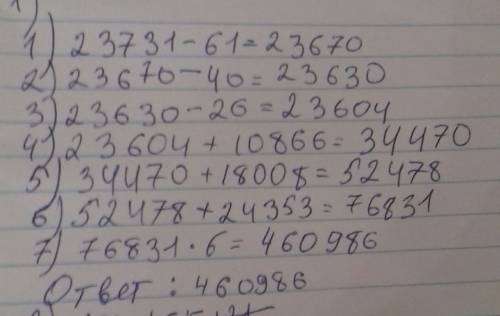 1) 23731-61=23670
2) 23670-40=23630
3) 23630-26=23604
4) 23604+10866=34470
5) 34470+18008=52478
6) 52478+24353=76831
7) 76831·6=460986
Ответ: 460986